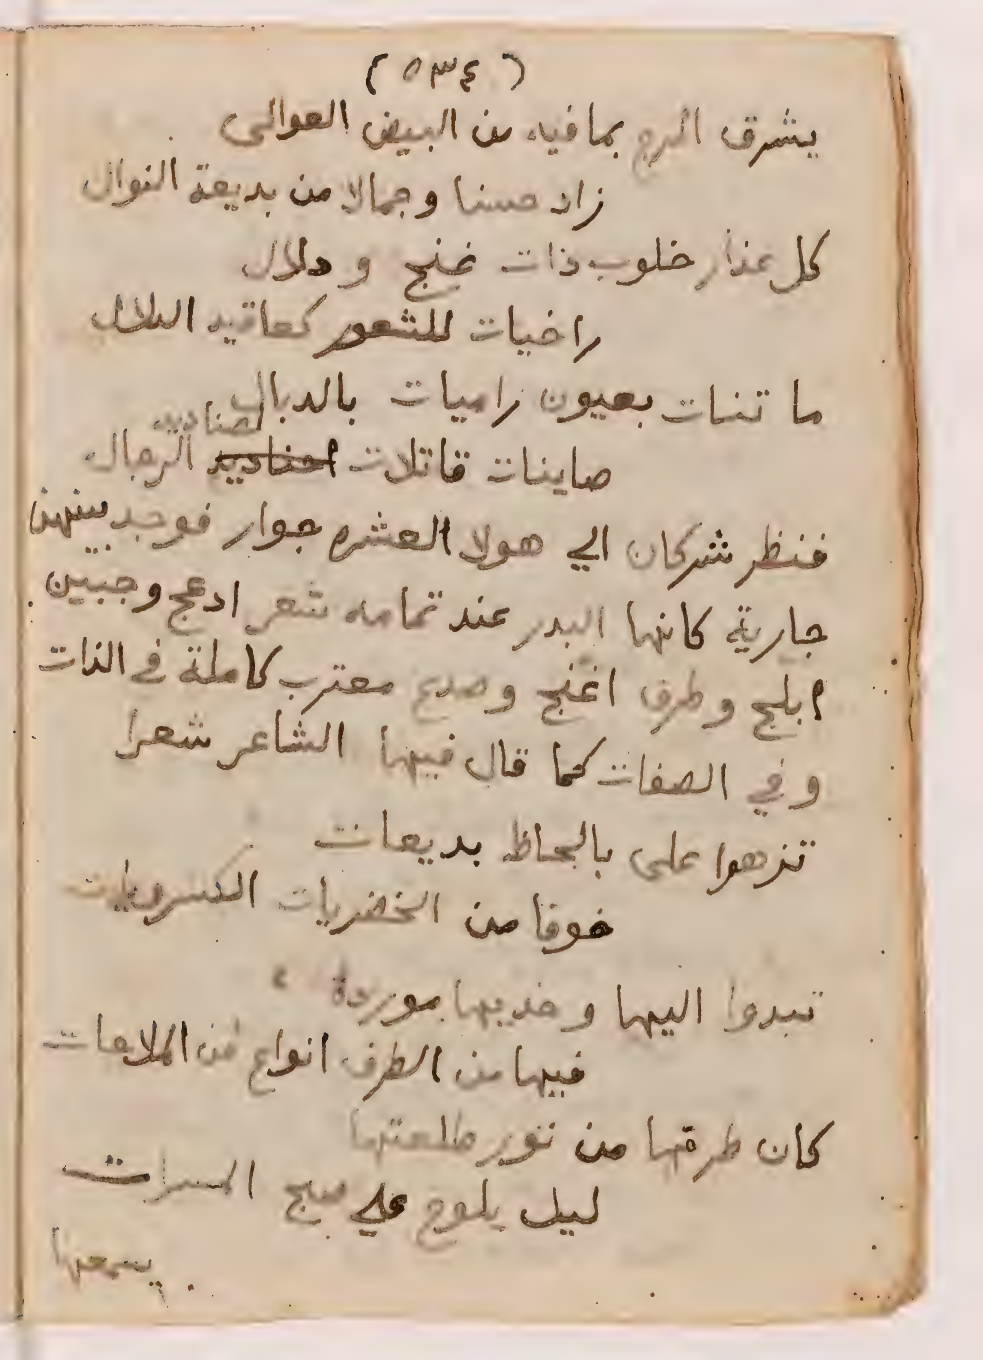 (٥٣٤)
يشرق المرج بما فيه من البيض العوالى
زاد حسنا وجمالا من بديعة النوال
كل عذار خلوب ذات غنج و دلال
راخيات للشعور كعاقيد الدلال
ما تنات بعيون راميات بالدبال
لصناديد
صاينات قاتلات احناديد الرجال
فنظر شركان الي هولا العشره جوار فوجد بينهن
جارية كانها البدر عند تمامه شعر ادعج وجبين
ابلج وطرف اغنج وصدغ معترب كاملة في الذات
وفي الصفات كما قال فيها الشاعر شعرا
تزهوا على بالحاظ بديعات
خوفا من الخضريات الكسرويات
تبدوا اليها وخديها موردة
فيها من الطرف انواع من الملاحات
كان طرقها من نور طلعتها
ليل يلوح علي صبح المسرات
يسمعنا